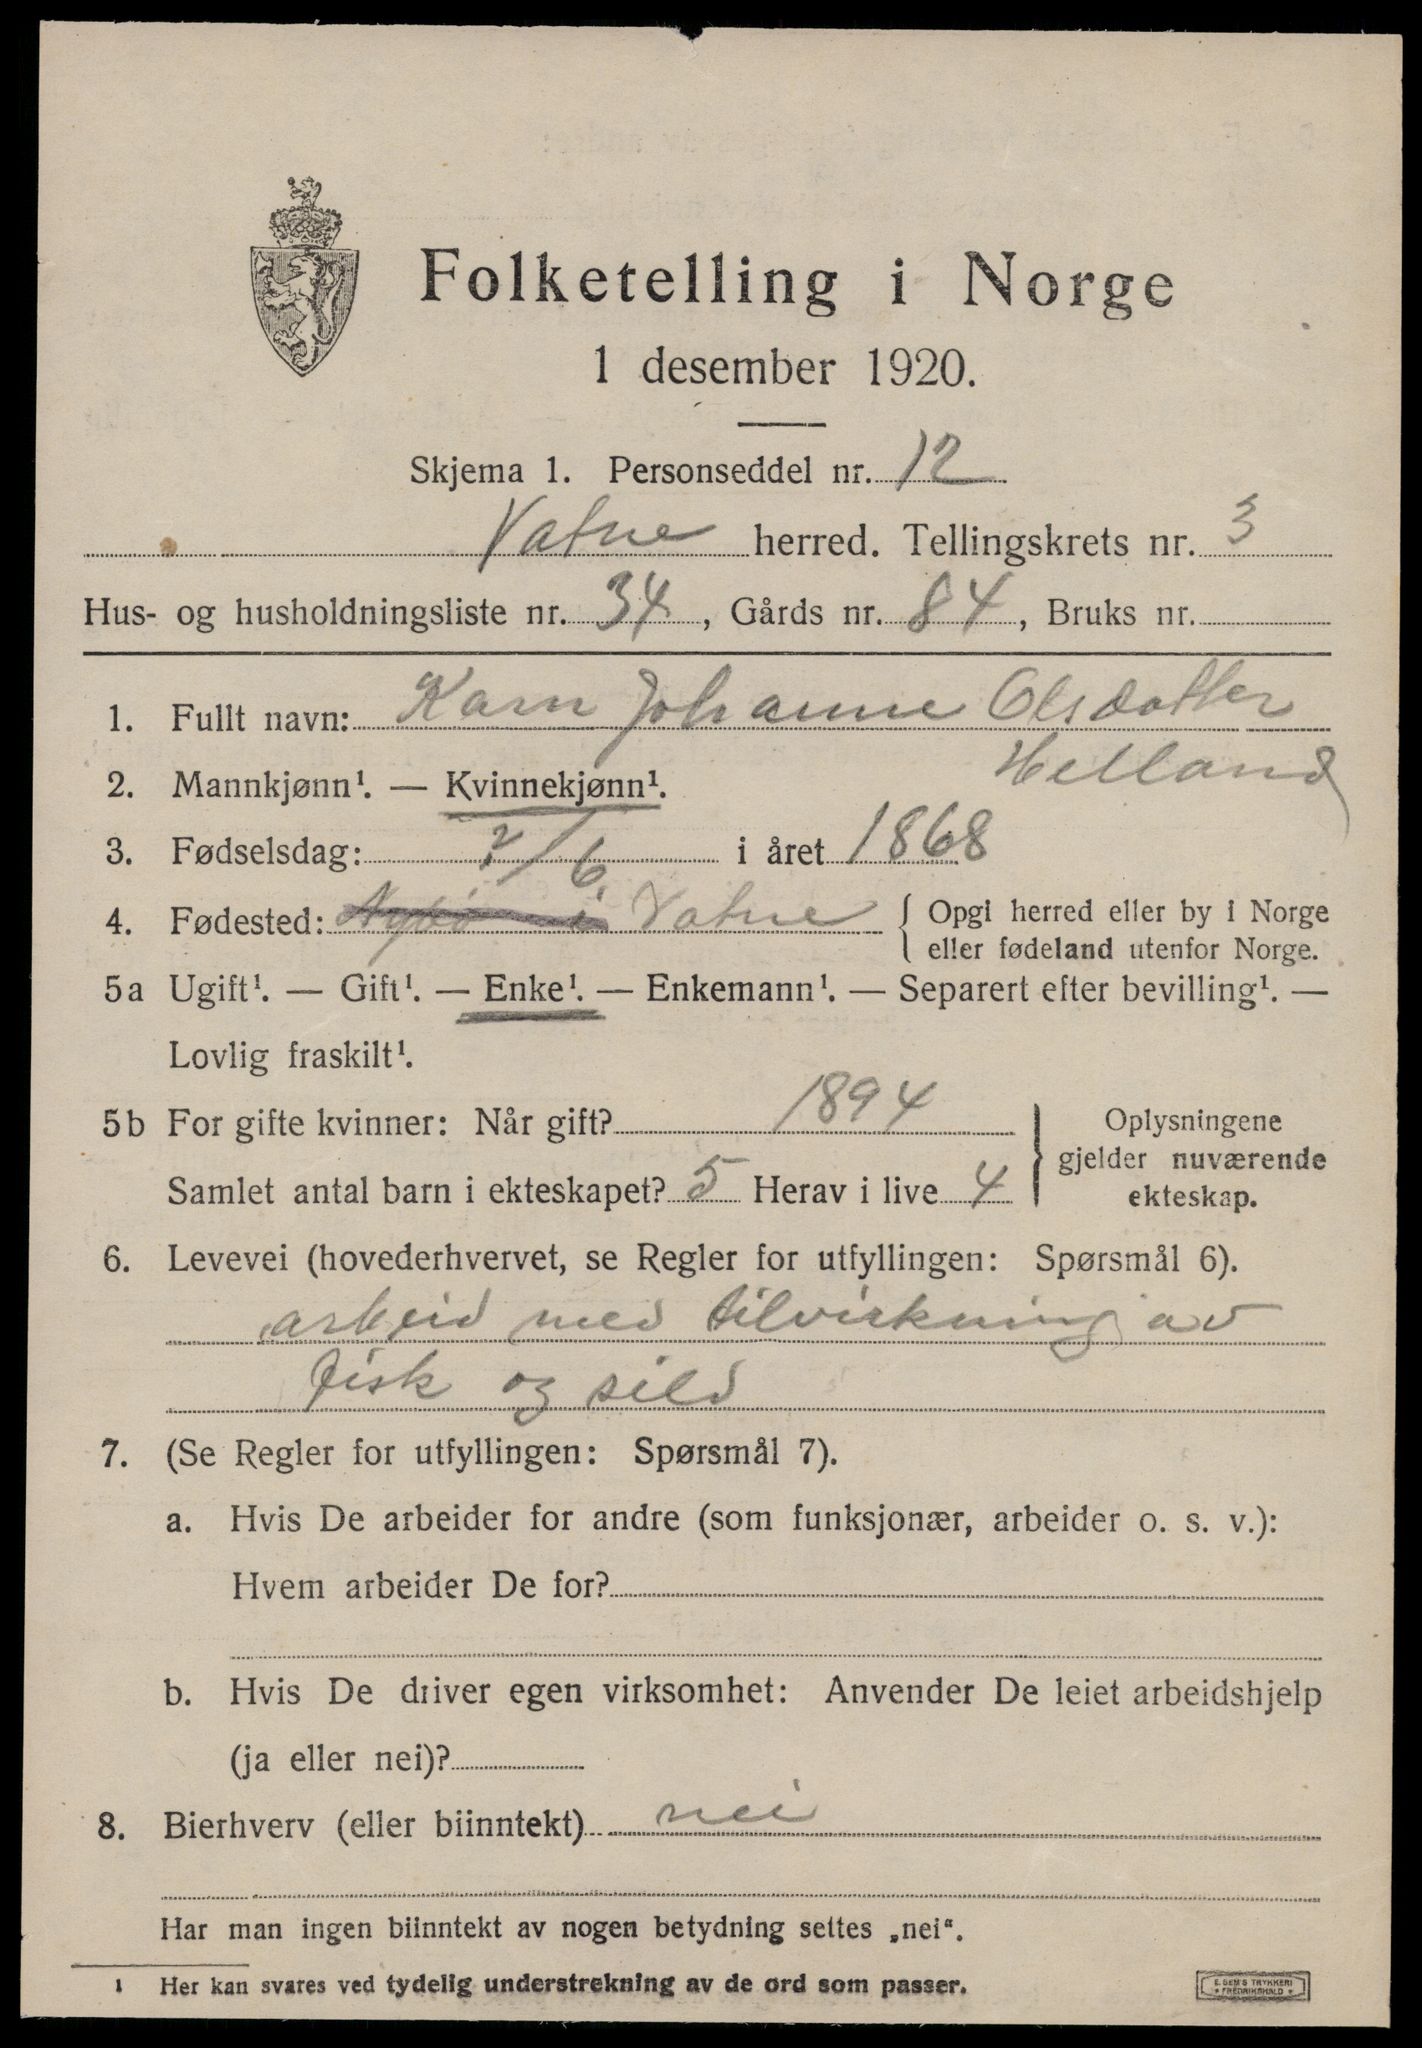 Folketelling i Norge
1 desember 1920.
Skjema 1. Personseddel nr. 12
Vatne herred. Tellingskrets nr. 3
Hus- og husholdningsliste nr. 34, Gårds nr. 84, Bruks nr.
1. Fullt navn: Karn Johanne Olsdatter
Helland
2. Mannkjønn¹. — Kvinnekjønn¹.
3. Fødselsdag: 7/6. i året 1868
4. Fødested: i Vatne { Opgi herred eller by i Norge
eller fødeland utenfor Norge.
5a Ugift¹. — Gift¹. — Enke¹. — Enkemann¹. — Separert efter bevilling¹. —
Lovlig fraskilt¹.
5b For gifte kvinner: Når gift? 1894
Samlet antal barn i ekteskapet? 5 Herav i live 4
} Oplysningene
gjelder nuværende
ekteskap.
6. Levevei (hovederhvervet, se Regler for utfyllingen: Spørsmål 6).
arbeid med tilvirkning av
fisk og sild
7. (Se Regler for utfyllingen: Spørsmål 7).
a. Hvis De arbeider for andre (som funksjonær, arbeider o. s. v.):
Hvem arbeider De for?
b. Hvis De driver egen virksomhet: Anvender De leiet arbeidshjelp
(ja eller nei)?
8. Bierhverv (eller biinntekt) nei
Har man ingen biinntekt av nogen betydning settes „nei“.
1 Her kan svares ved tydelig understrekning av de ord som passer.
E. SEM'S TRYKKERI
* FREDRIKSHALD *